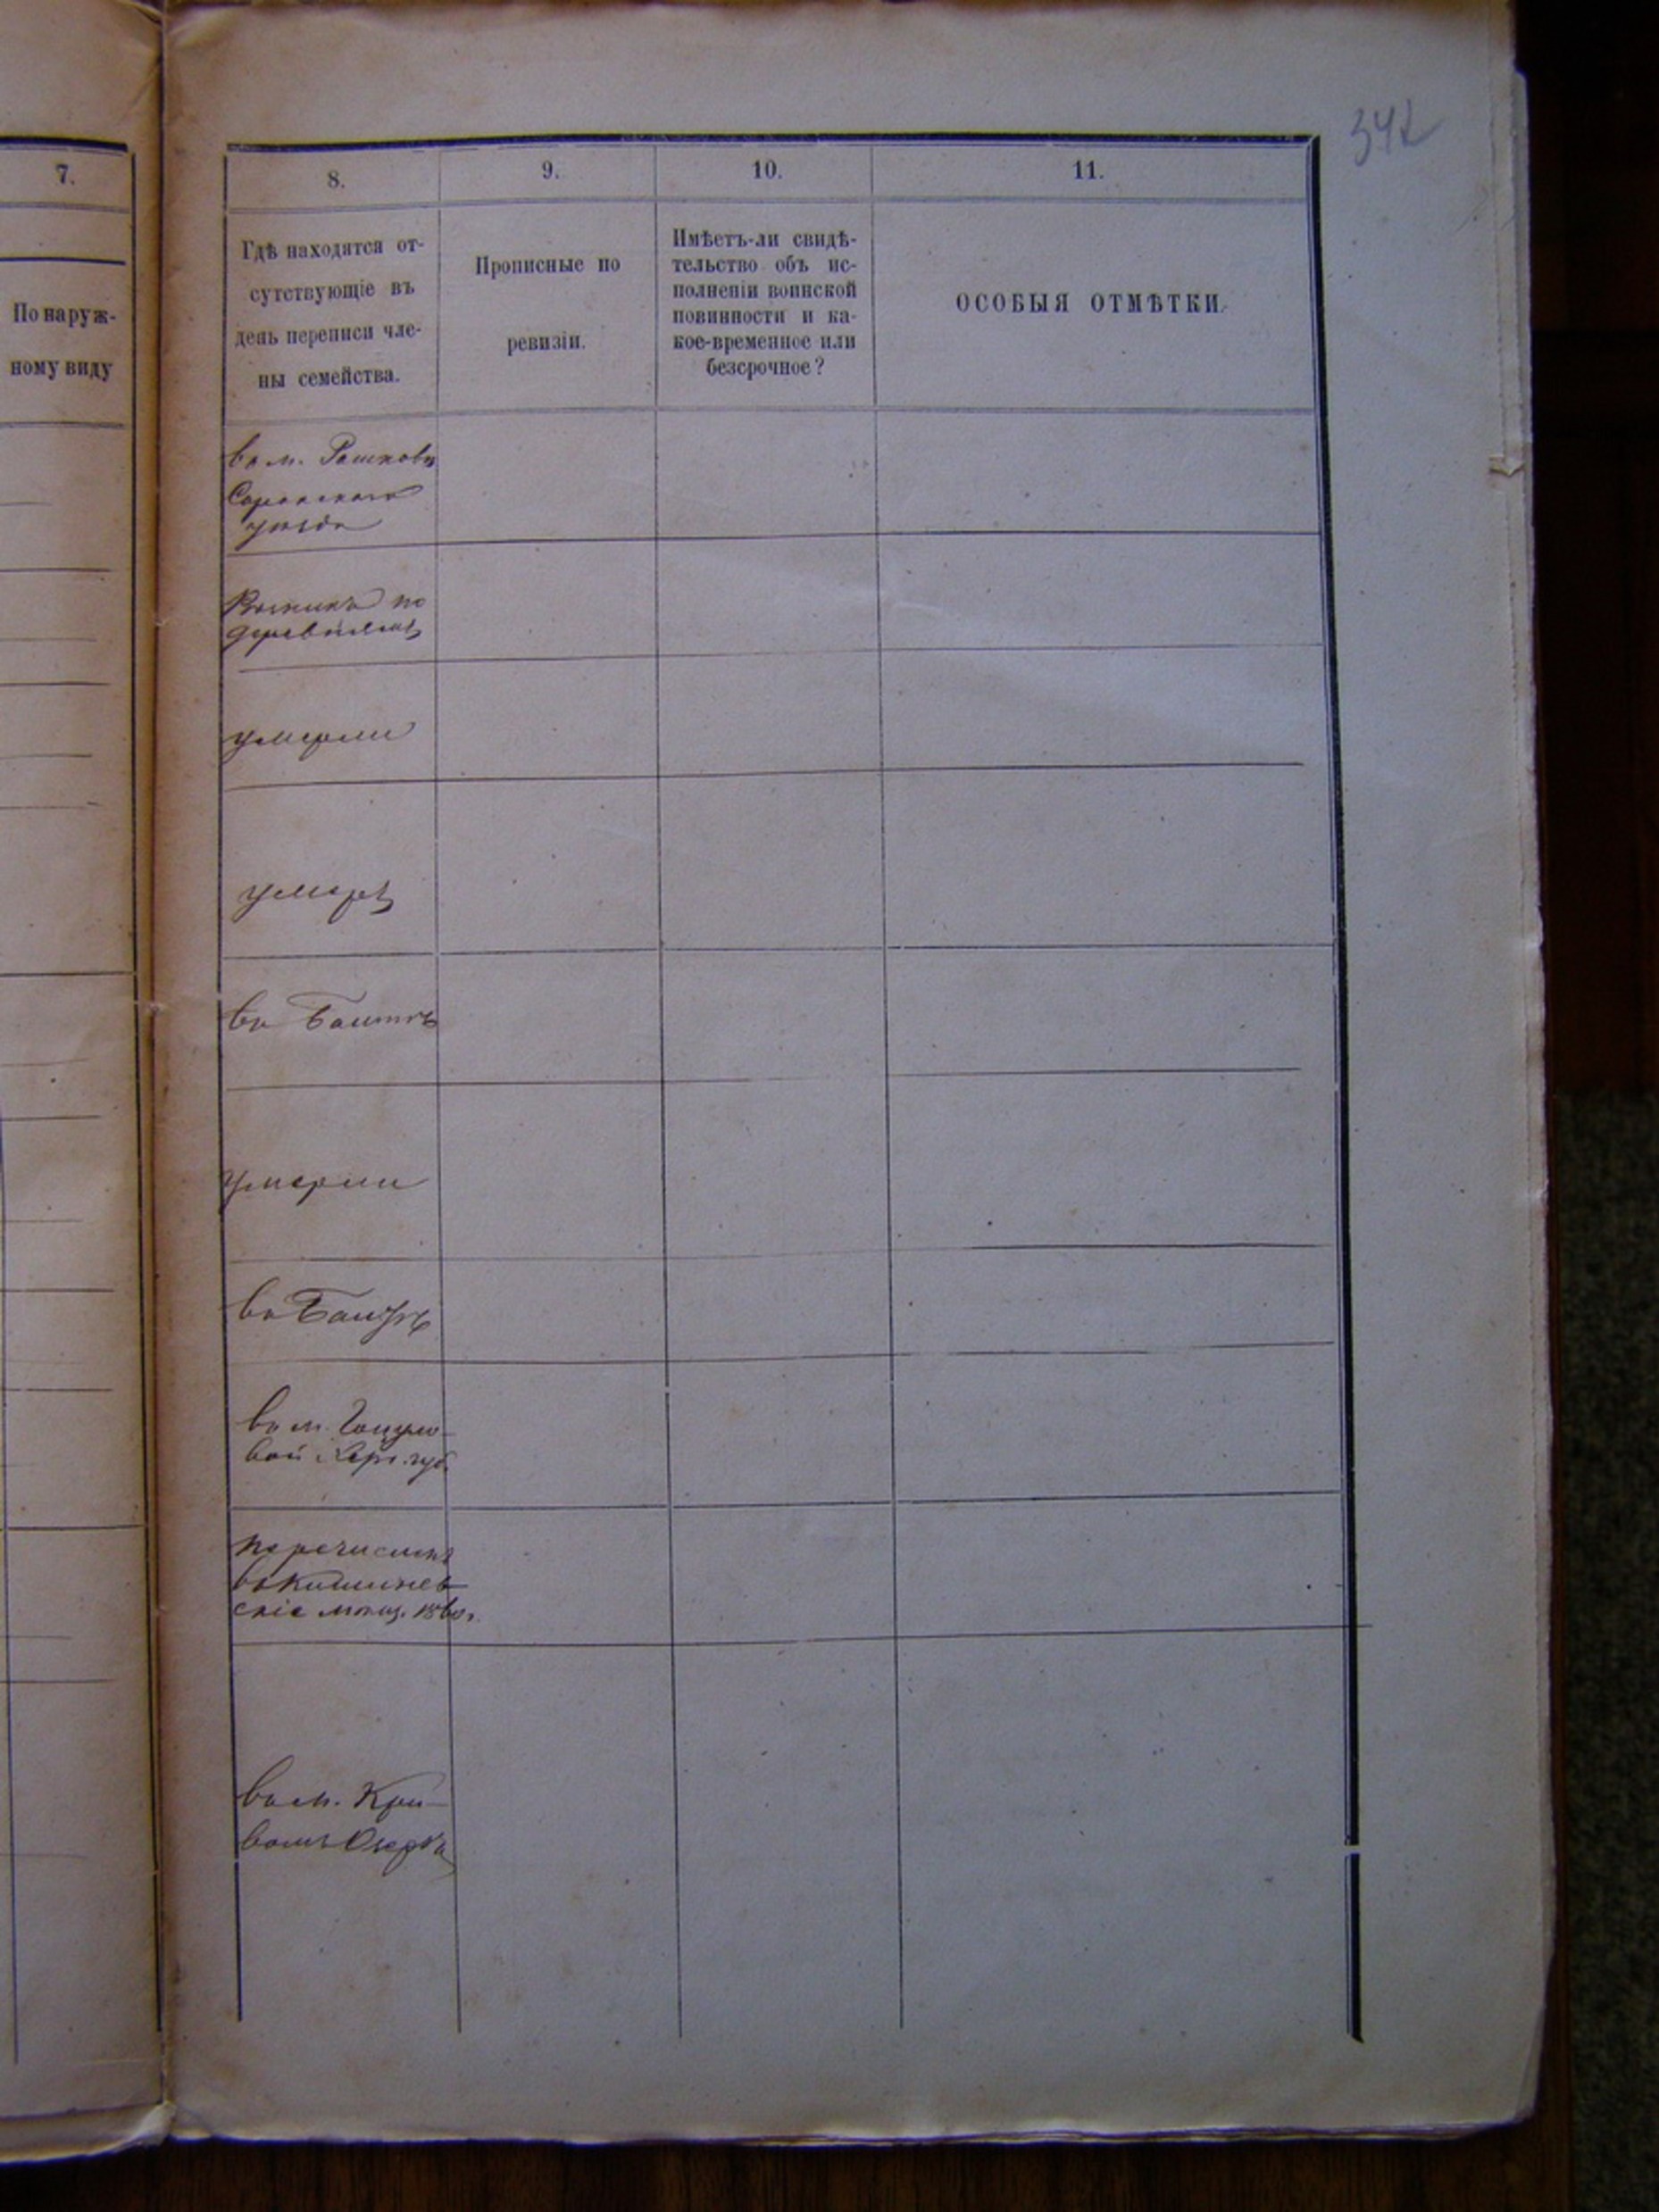 342
7.
По наруж-
ному виду
8.
9.
10.
11.
Гдѣ находятся от-
сутствующіе въ
день переписи чле-
ны семейства.
Прописные по
ревизіи.
Имѣетъ-ли свидѣ-
тельство объ ис-
полненіи воинской
повинности и ка-
кое-временное или
безсрочное?
ОСОБЫЯ ОТМѢТКИ.
въ м. Рашковѣ
Сорокскаго
уѣзда
по
деревнямъ
умерли
умеръ
въ Балтѣ
умерли
въ Балтѣ
въ м.
вой Херс. губ.
перечисленъ
въ Кишинев-
скіе мѣщ. 1860 г.
въ м. Кри-
вомъ Озерѣ